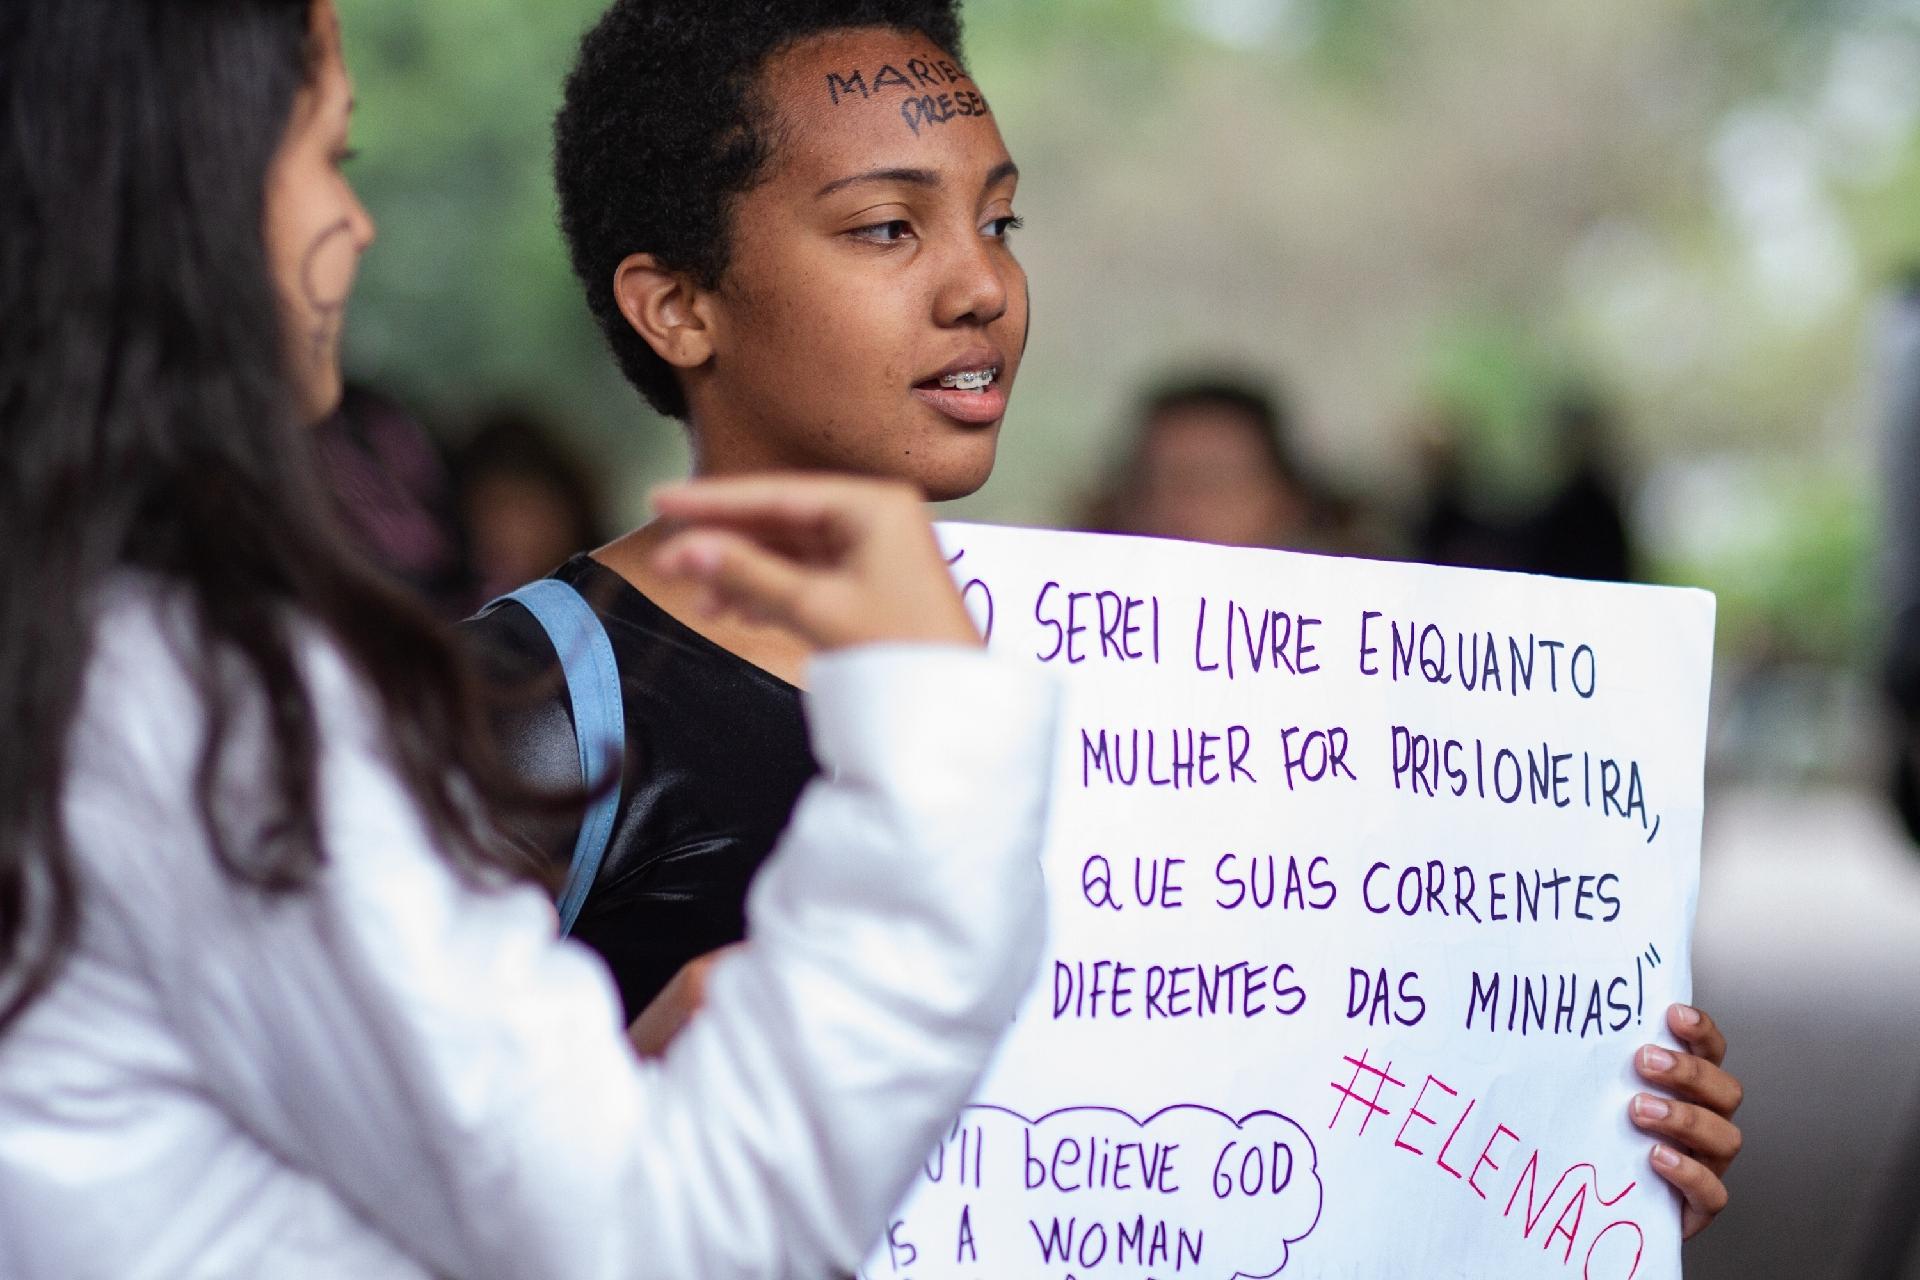 MARIEL
PRESEN
ÃO SEREI LIVRE ENQUANTO
MULHER FOR PRISIONEIRA,
QUE SUAS CORRENTES
DIFERENTES DAS MINHAS!"
#ELENÃO
'll beliEVE GOD
IS A WOMAN